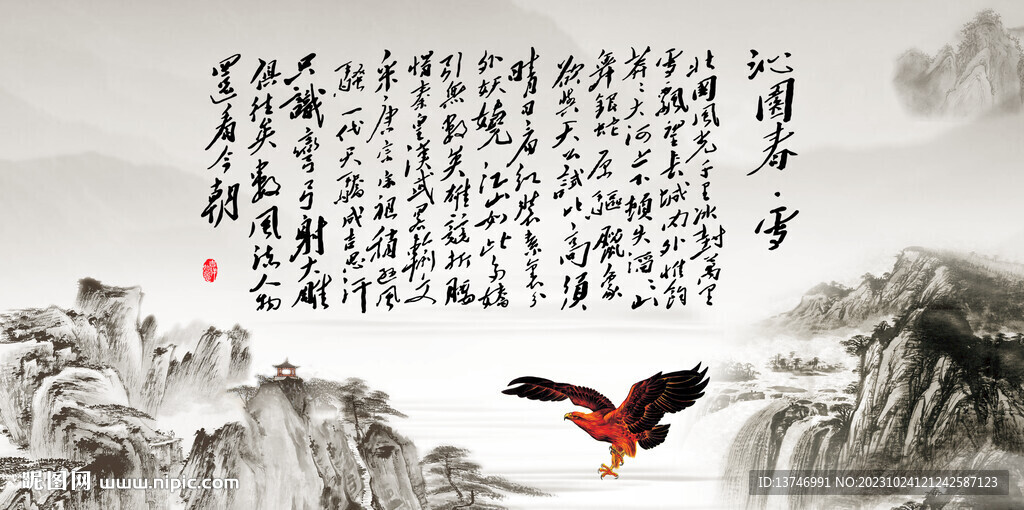 沁園春·雪
北國風光千里冰封萬里
雪飄望長城內外惟餘
莽々大河上下頓失滔々山
舞銀蛇原驅臘象
欲與天公試比高須
晴日看紅裝素裹分
外妖嬈江山如此多嬌
引無數英雄競折腰
惜秦皇漢武略輸文
采唐宗宋祖稍遜風
騷一代天驕成吉思汗
只識彎弓射大雕
俱往矣數風流人物
還看今朝
昵图网 www.nipic.com
ID:13746991 NO:20231024121242587123